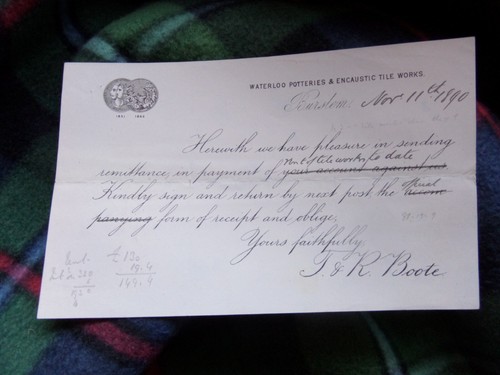 WATERLOO POTTERIES & ENCAUSTIC TILE WORKS.
1851 1862
Burslem, Nov 11th 1890
Herewith we have pleasure in sending
Rent of tile works to date
remittance in payment of your account against us
Kindly sign and return by next post the accom
usual
panying form of receipt and oblige.
Yours faithfully,
T. & R. Boote
£
120
19.4